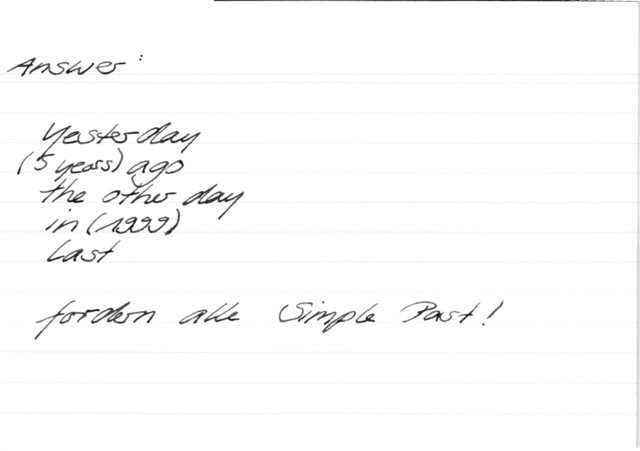 Answer:
Yesterday
(5 years) ago
the other day
in (1999)
Last
fordern alle Simple Past!